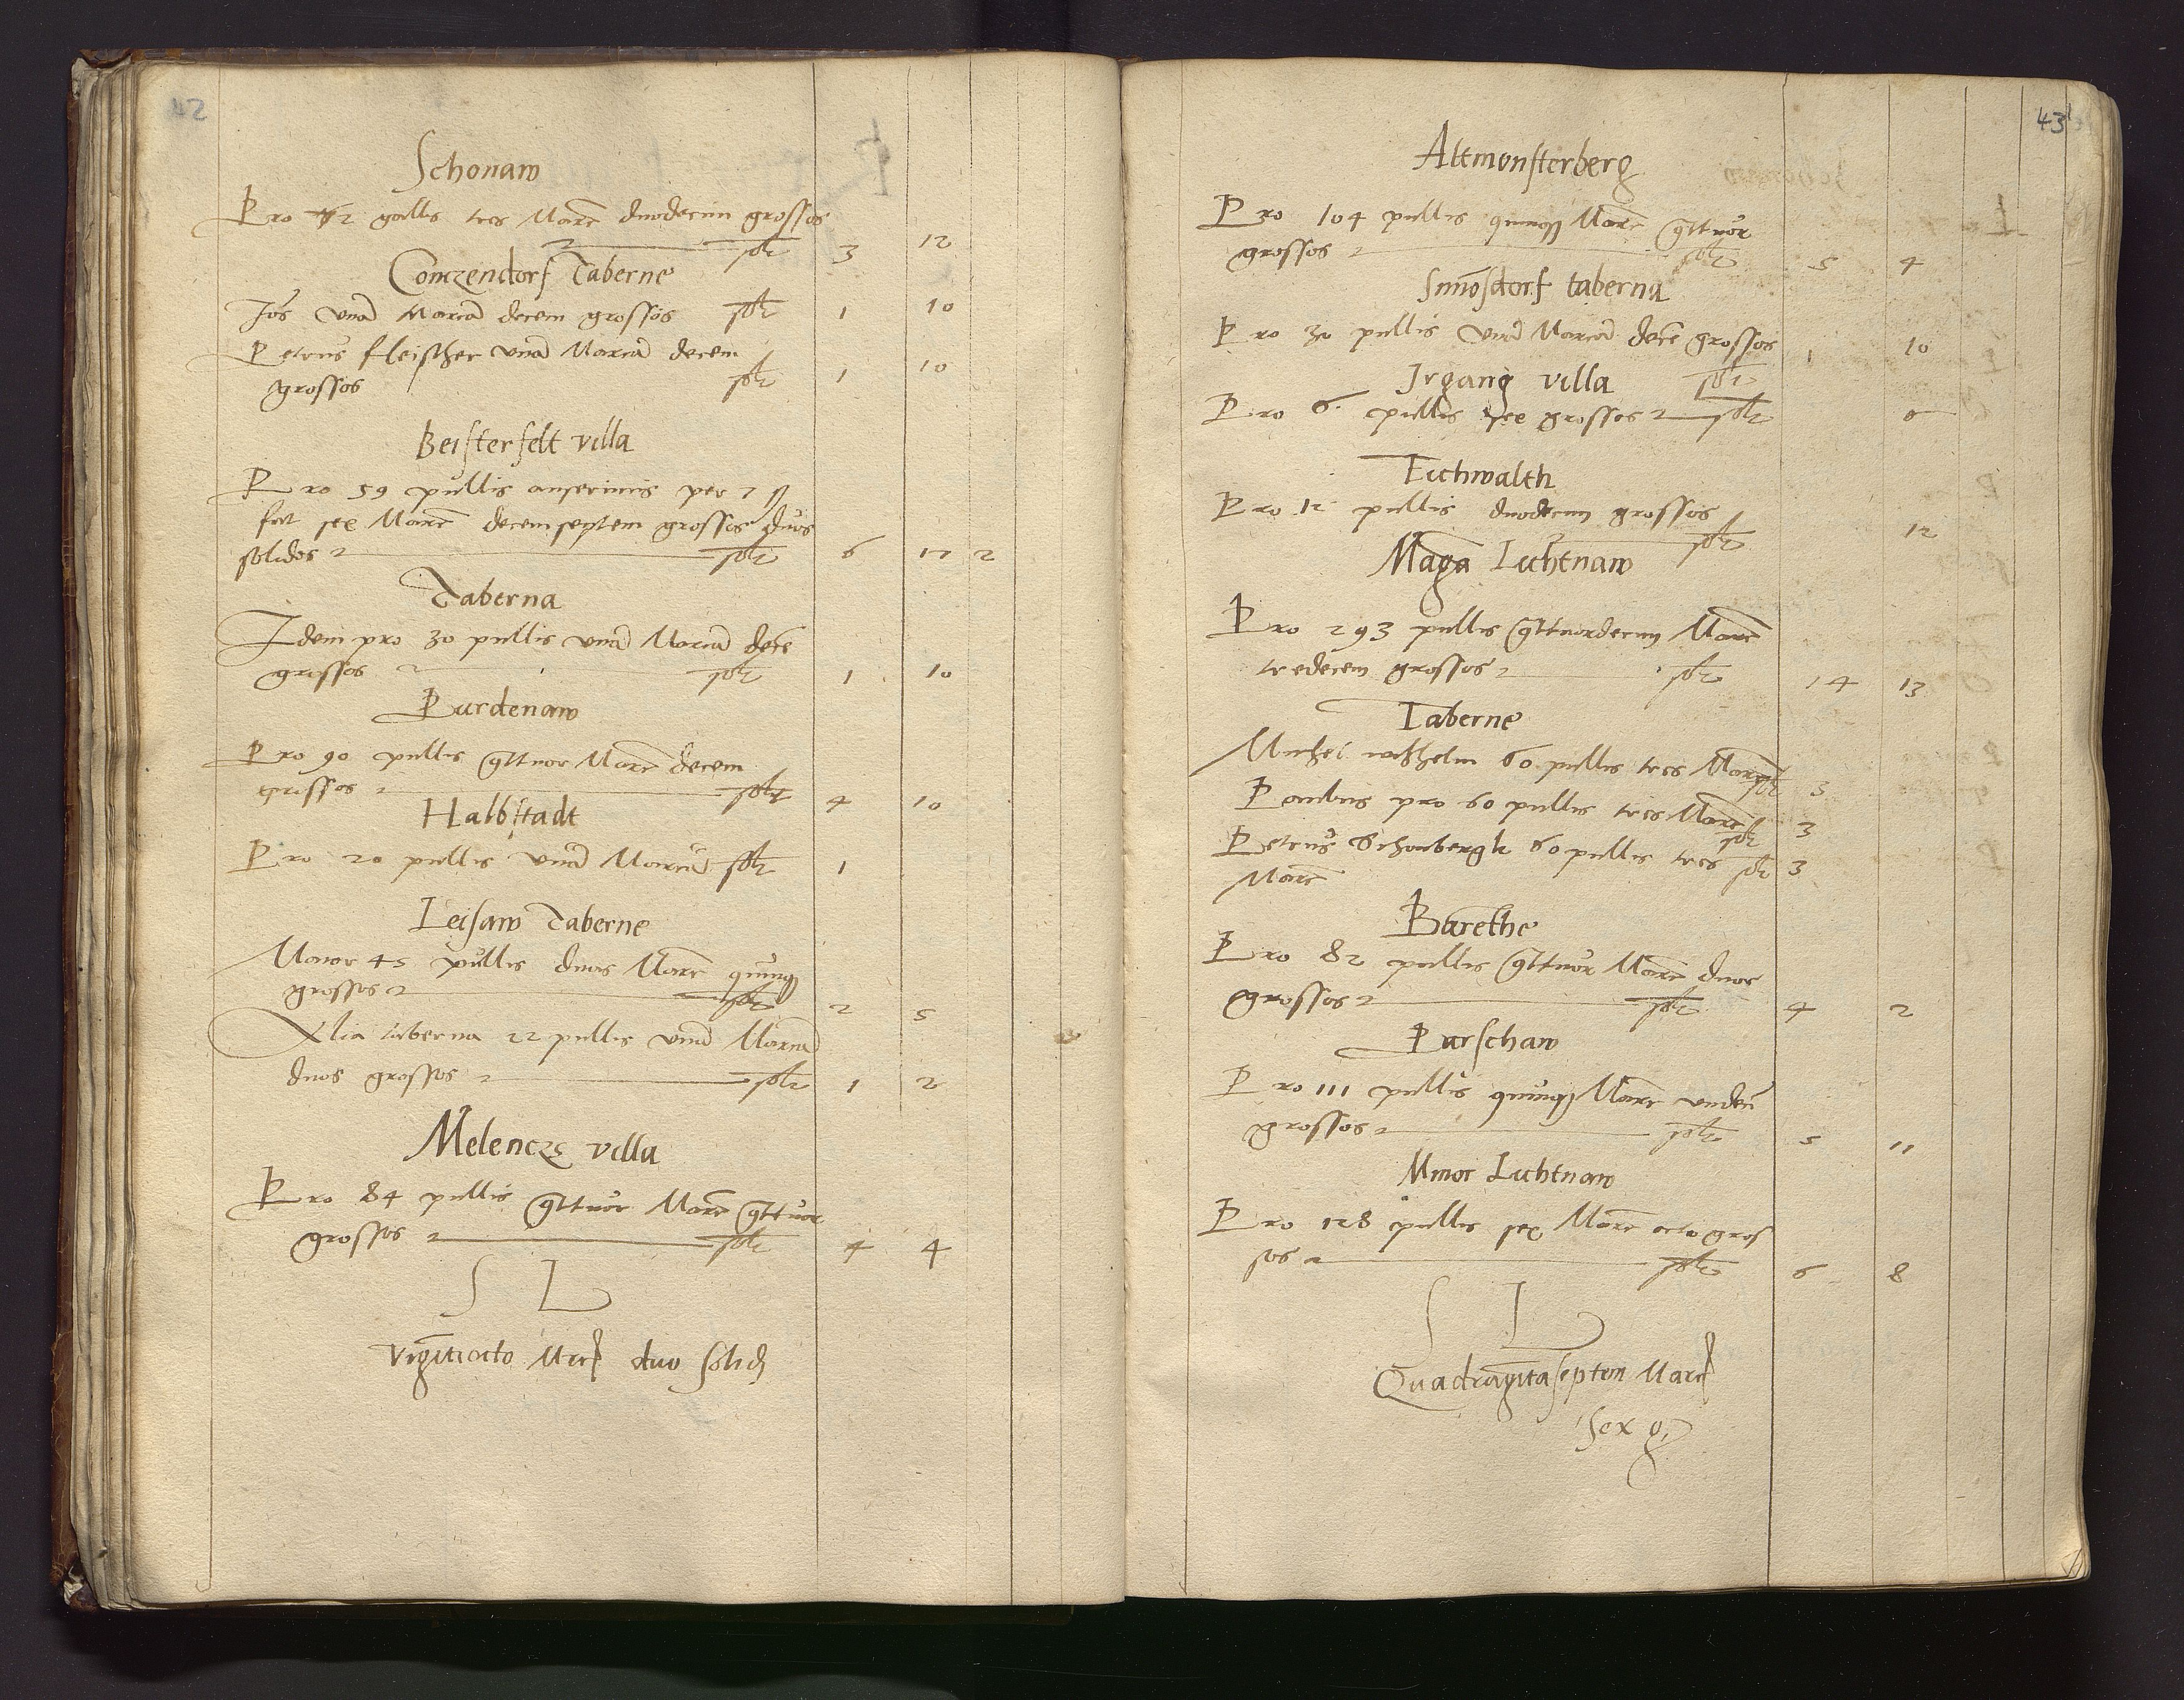 42
Schonaw
Pro 72 gallis tres Marc duodecim grossos
solt 3 12
Comzendorf Taberne
Jos unā Marcā decem grossos solt 1 10
Petrus fleischer unā Marcā decem
grossos solt 1 10
Beisterfelt villa
Pro 59 pullis anserinis per 7 ß
fat sex Marc decemseptem grossos duos
solidos solt 6 17 2
Taberna
Idem pro 30 pullis unā Marcā decē
grossos solt 1 10
Purdenaw
Pro 90 pullis qttuor Marc decem
grossos solt 4 10
Halbstadt
Pro 20 pullis unā Marcā solt 1
Leisaw Taberne
Maior 45 pullis duas Marc quinqꝫ
grossos solt 2 5
Alia taberna 22 pullis unā Marcā
duos grossos solt 1 2
Melenczs villa
Pro 84 pullis qttuor Marc qttuor
grossos solt 4 4
S L
Vigītiocto Mrc duo solid
43
Altmonsterberg
Pro 104 pullis quinqꝫ Marc qttuor
grossos solt 5 4
Simōsdorf taberna
Pro 30 pullis unā Marcā decē grossos 1 10
Irgang villa solt
Pro 6 pullis sex grossos solt 6
Eichwalth
Pro 12 pullis duodecim grossos
solt 12
Maga Lichtnaw
Pro 293 pullis qttuordecim Marc
tredecem grossos solt 14 13
Taberne
Michel wilhelm 60 pullis tres Marc solt 3
Paulus pro 60 pullis tres Marc solt 3
Petrus Schonbergk 60 pullis tres solt 3
Marc
Barethe
Pro 82 pullis qttuor Marc duos
grossos solt 4 2
Parschaw
Pro 111 pullis quinqꝫ Marc undeci
grossos solt 5 11
Minor Lichtnaw
Pro 128 pullis sex Marc octo gros
sos solt 6 8
S L
Quadragītaseptem Marc
sex g